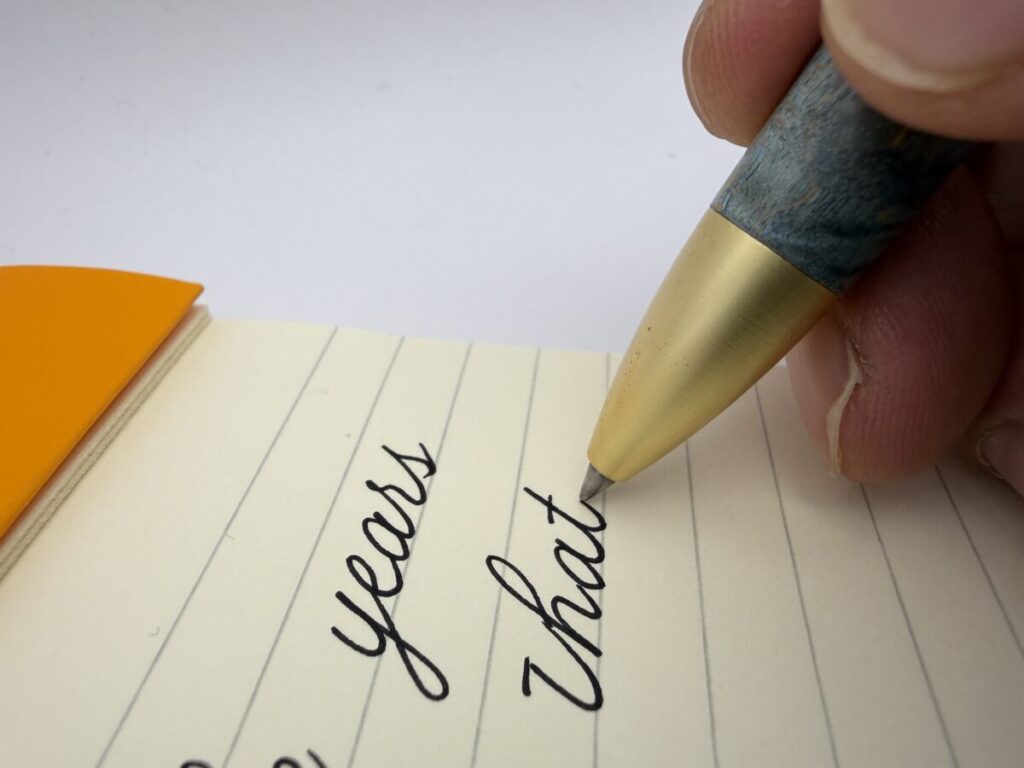 years
That